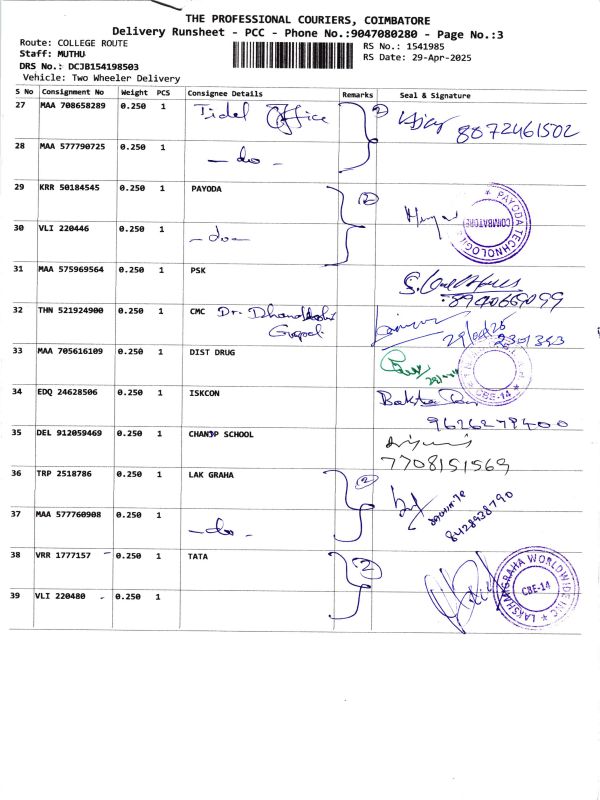 THE PROFESSIONAL COURIERS, COIMBATORE
Delivery Runsheet - PCC - Phone No.:9047080280 - Page No.:3
Route: COLLEGE ROUTE
RS No.: 1541985
Staff: MUTHU
RS Date: 29-Apr-2025
DRS No.: DCJB154198503
Vehicle: Two Wheeler Delivery
S No Consignment No Weight PCS Consignee Details Remarks Seal & Signature
27 MAA 708658289 0.250 1 Tidel Office 2 8872461502
28 MAA 577790725 0.250 1 - do -
29 KRR 50184545 0.250 1 PAYODA 2 PAYODA TECHNOLOGIES COIMBATORE
30 VLI 220446 0.250 1 - do -
31 MAA 575969564 0.250 1 PSK
32 THN 521924900 0.250 1 CMC Dr. Gopal
33 MAA 705616109 0.250 1 DIST DRUG CBE-14
34 EDQ 24628506 0.250 1 ISKCON 9626279400
35 DEL 912059469 0.250 1 SCHOOL 7708151569
36 TRP 2518786 0.250 1 LAK GRAHA 2 8428938790
37 MAA 577760908 0.250 1 - do -
38 VRR 1777157 - 0.250 1 TATA 2 LAKSHMIGRAHA WORLDWIDE INC CBE-14
39 VLI 220480 - 0.250 1